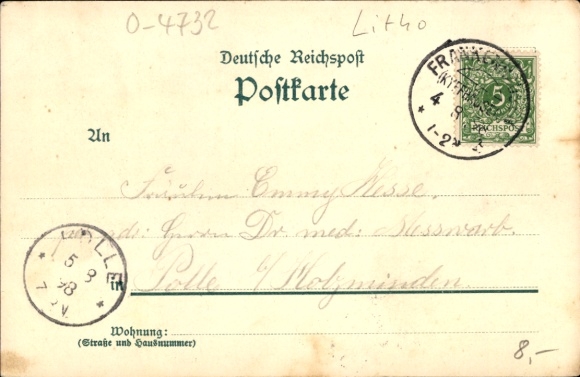 O-4732
Litho
Deutsche Reichspost
Postkarte
5
REICHSPOST
4 8
1-2N
An
Fräulein Emmy Hesse.
Herrn Dr. med. Messwarb.
in Polle b/Holzminden
POLLE
5 8
98
7
Wohnung:
(Straße und Hausnummer)
8,-